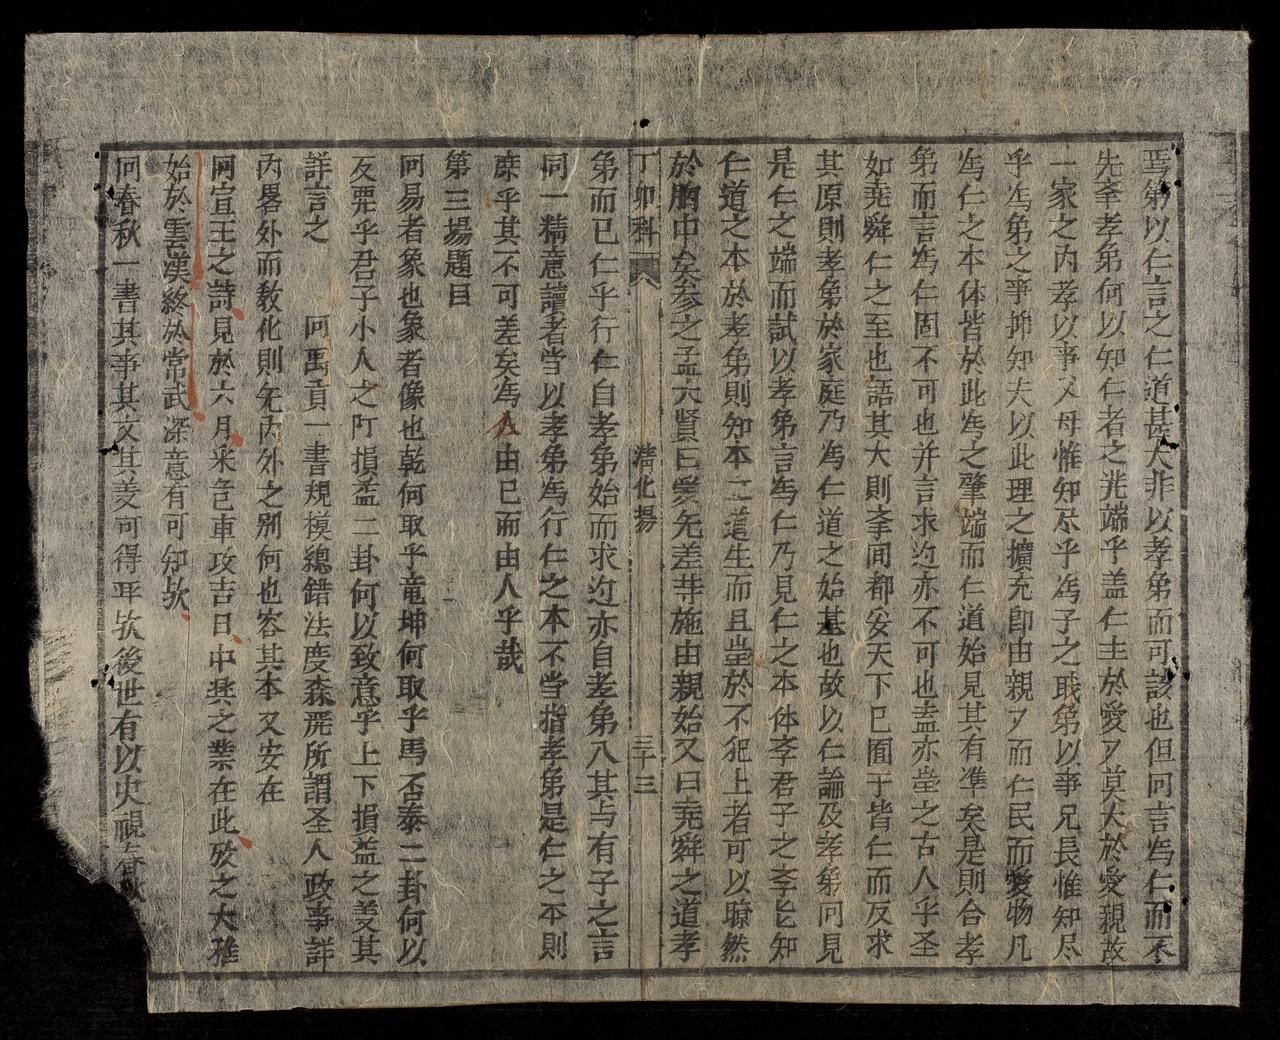 焉第以仁言之仁道甚大非以孝弟而可該也但問言爲仁而不
先孝弟何以知仁者之光端乎盖仁主於愛又莫大於愛親故
一家之内孝以事父母惟知尽乎爲子之职弟以事兄長惟知尽
乎爲弟之事抑知夫以此理之擴充即由親々而仁民而愛物凡
爲仁之本体皆於此爲之肇端而仁道始見其有凖矣是則合孝
弟而言爲仁固不可也并言求迩亦不可也盍亦𮗚之古人乎圣
如尭舜仁之至也語其大則李间都爻安天下已囿于皆仁而反求
其原則孝弟於家庭乃爲仁道之始基也故以仁論及孝弟问見
是仁之端而試以孝弟言爲仁乃見仁之本体李君子之李也知
仁道之本於孝弟則知本立道生而且𮗚於不犯上者可以瞭然
於胸中矣参之孟六賢曰愛无差䓁施由親始又曰尭舜之道孝
丁卯科
清化塲
三十三
弟而已仁乎行仁自孝弟始而求迩亦自孝弟八其与有子之言
同一精意讀者当以孝弟爲行仁之本不当指孝弟是仁之本則
庶乎其不可差矣爲人由已而由人乎哉
第三塲題目
问易者象也象者像也乾何取乎竜坤何取乎馬否泰二卦何以
反𮎛乎君子小人之所損益二卦何以致意乎上下損益之義其
詳言之
问禹貢一書規模緫錯法度森𮎛所謂圣人政事詳
内畧外而教化則无内外之别何也容其本又安在
问宣王之詩見於六月采芑車攻吉日中興之業在此攷之大雅
始於雲漢終於常武深意有可知欤
问春秋一書其事其文其義可得耳欤後世有以史視春秋